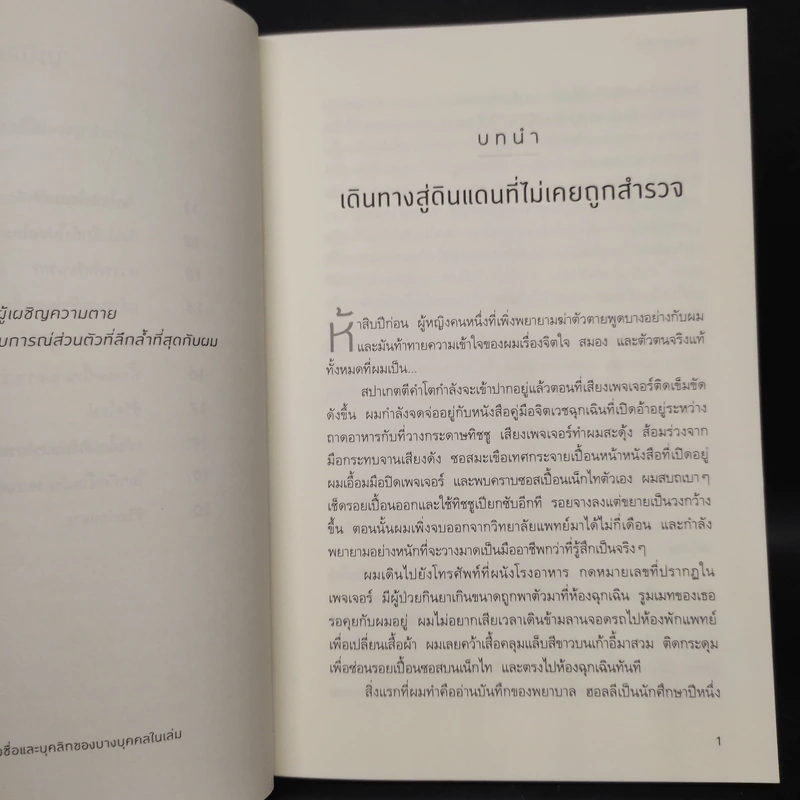 ผู้เผชิญความตาย
การณ์ส่วนตัวที่ลึกล้ำที่สุดกับผม
ชื่อและบุคลิกของบางบุคคลในเล่ม
บทนำ
เดินทางสู่ดินแดนที่ไม่เคยถูกสำรวจ
ห้าสิบปีก่อน ผู้หญิงคนหนึ่งที่เพิ่งพยายามฆ่าตัวตายพูดบางอย่างกับผม
และมันท้าทายความเข้าใจของผมเรื่องจิตใจ สมอง และตัวตนจริงแท้
ทั้งหมดที่ผมเป็น...
สปาเกตตีคำโตกำลังจะเข้าปากอยู่แล้วตอนที่เสียงเพจเจอร์ติดเข็มขัด
ดังขึ้น ผมกำลังจดจ่ออยู่กับหนังสือคู่มือจิตเวชฉุกเฉินที่เปิดอ้าอยู่ระหว่าง
ถาดอาหารกับที่วางกระดาษทิชชู เสียงเพจเจอร์ทำผมสะดุ้ง ส้อมร่วงจาก
มือกระทบจานเสียงดัง ซอสมะเขือเทศกระจายเปื้อนหน้าหนังสือที่เปิดอยู่
ผมเอื้อมมือปิดเพจเจอร์ และพบคราบซอสเปื้อนเน็กไทตัวเอง ผมสบถเบาๆ
เช็ดรอยเปื้อนออกและใช้ทิชชูเปียกซับอีกที รอยจางลงแต่ขยายเป็นวงกว้าง
ขึ้น ตอนนั้นผมเพิ่งจบออกจากวิทยาลัยแพทย์มาได้ไม่กี่เดือน และกำลัง
พยายามอย่างหนักที่จะวางมาดเป็นมืออาชีพกว่าที่รู้สึกเป็นจริงๆ
ผมเดินไปยังโทรศัพท์ที่ผนังโรงอาหาร กดหมายเลขที่ปรากฏใน
เพจเจอร์ มีผู้ป่วยกินยาเกินขนาดถูกพาตัวมาที่ห้องฉุกเฉิน รูมเมทของเธอ
รอคุยกับผมอยู่ ผมไม่อยากเสียเวลาเดินข้ามลานจอดรถไปห้องพักแพทย์
เพื่อเปลี่ยนเสื้อผ้า ผมเลยคว้าเสื้อคลุมแล็บสีขาวบนเก้าอี้มาสวม ติดกระดุม
เพื่อซ่อนรอยเปื้อนซอสบนเน็กไท และตรงไปห้องฉุกเฉินทันที
สิ่งแรกที่ผมทำคืออ่านบันทึกของพยาบาล ฮอลลีเป็นนักศึกษาปีหนึ่ง
1